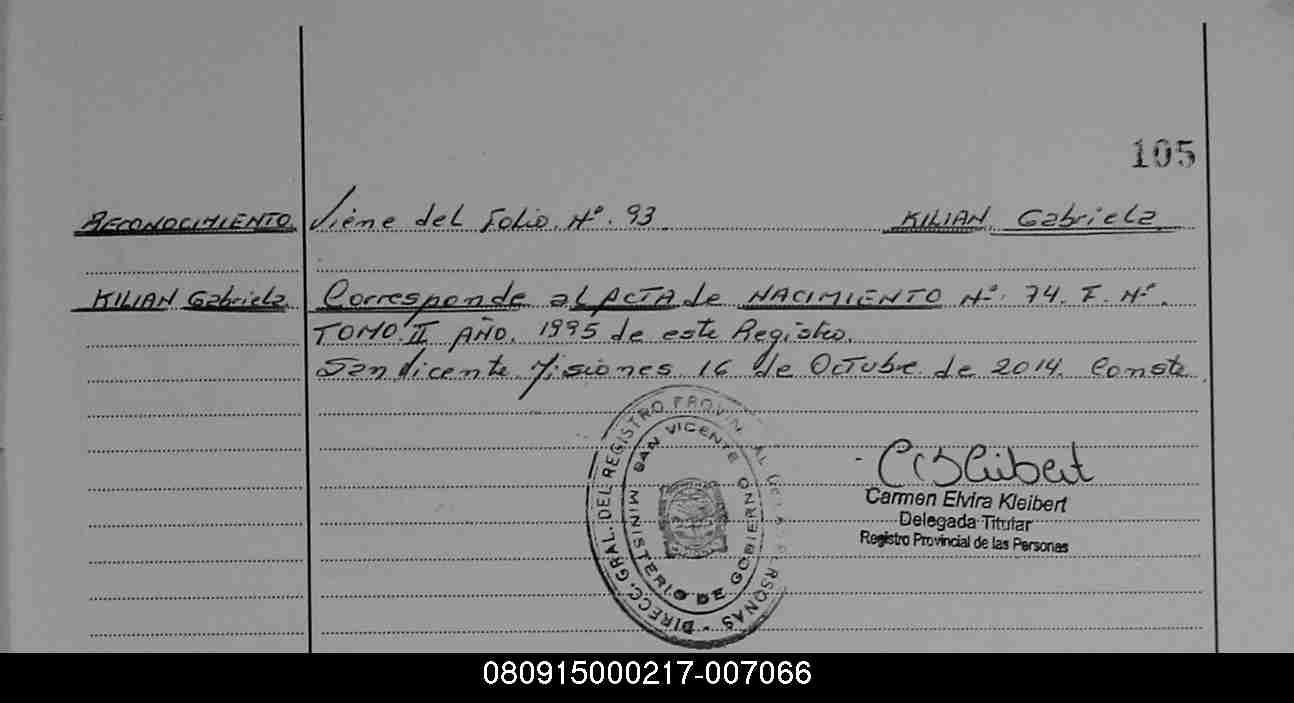 105
RECONOCIMIENTO Viene del Folio. Nº. 93 KILIAN Gabriela
KILIAN Gabriela Corresponde al ACTA de NACIMIENTO Nº. 74. F. Nº.
TOMO. II AÑO. 1995 de este Registro.
San Vicente Misiones 16 de OcTubre de 2014. Conste.
DIRECC. GRAL. DEL REGISTRO PROVINCIAL DE LAS PERSONAS -
SAN VICENTE
MINISTERIO DE GOBIERNO
Carmen Elvira Kleibert
Delegada Titular
Registro Provincial de las Personas
080915000217-007066